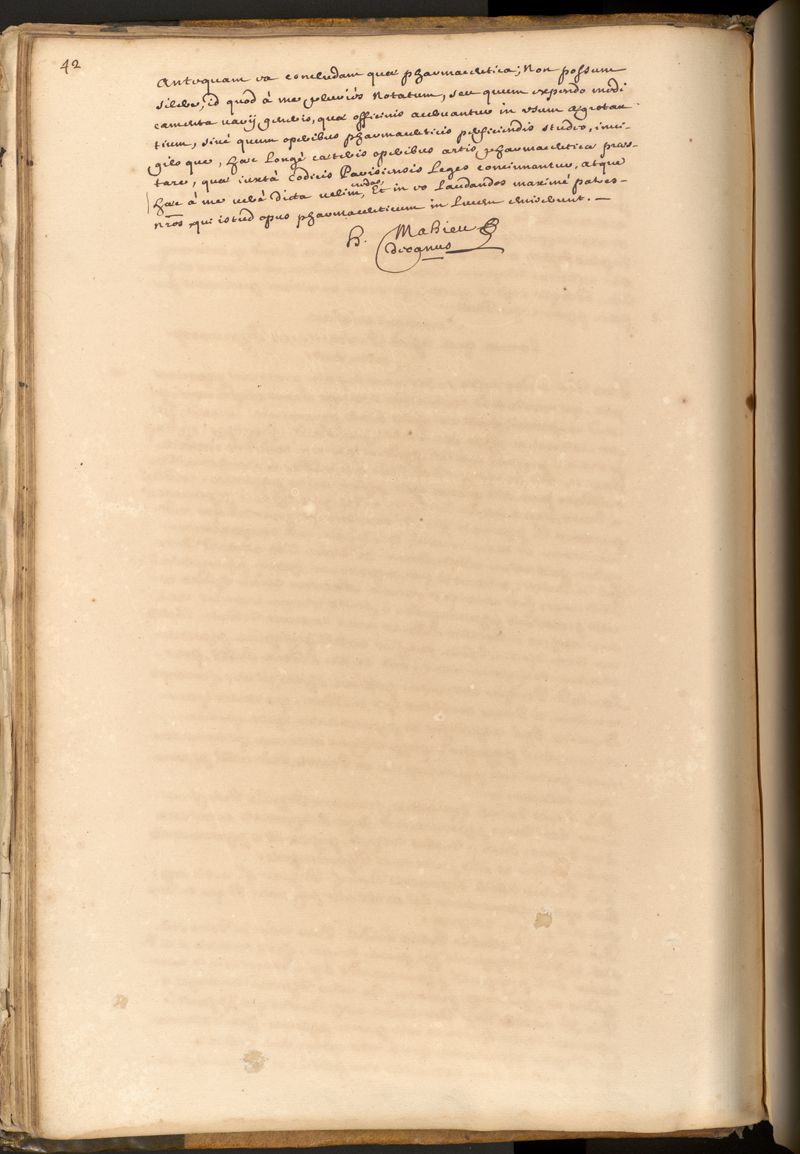 42
Antequam ea concludam quae pharmaceutica; Non possum
silere, id quod à me pluriés Notatum, seu quum expendo medi
camenta varij generis, quae officinis curantur in usum aegrotan
tium, sivé quum operibus pharmaceuticis perficiendis studeo, invi-
gilo que, haec Longé caeteris operibus artis pharmaceuticae praes-
tare, quae iuxtá Codicis Parisiensis Leges concinnantur, atque
haec á me verè dicta velim, Et in eo Laudandos maximé patres-
nros qui istud opus pharmaceuticum in Lucem emiserunt. —
h. Mahieu
decanus